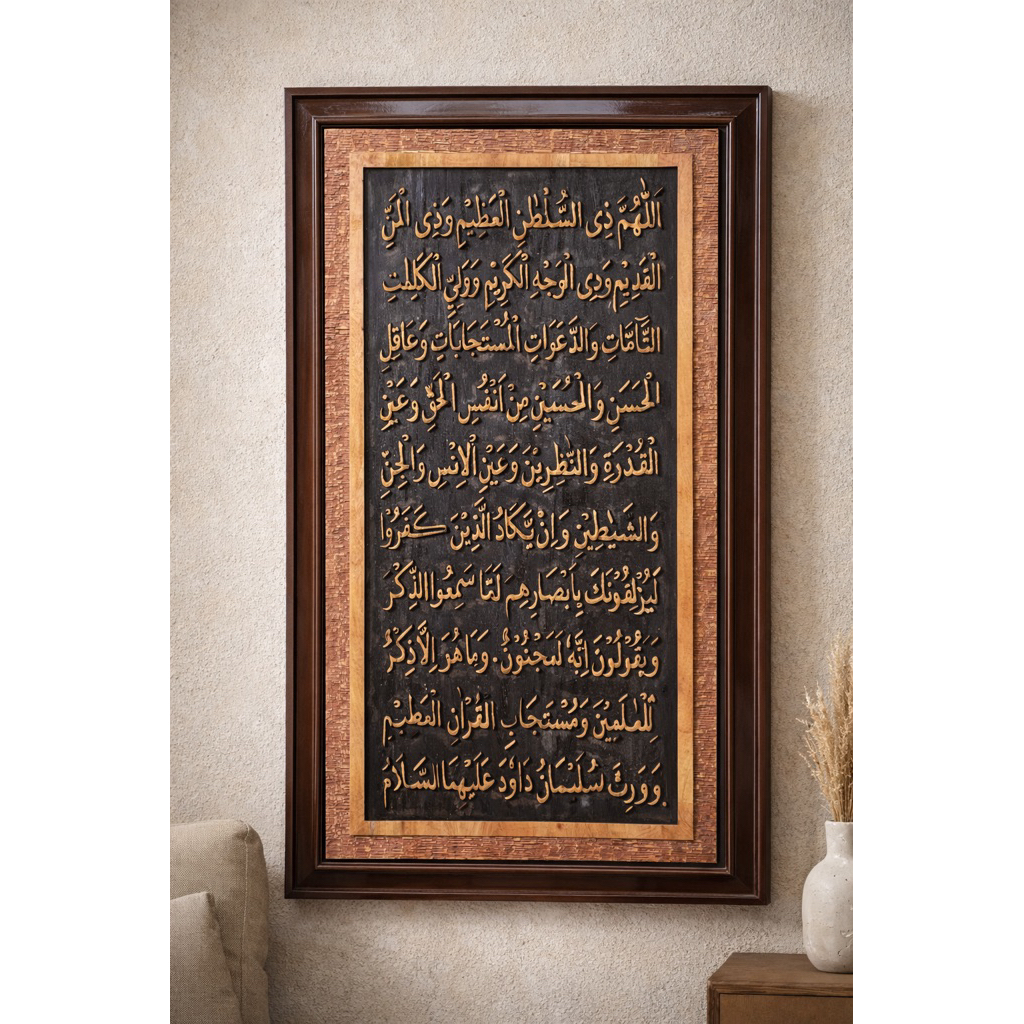 اَللّٰهُمَّ ذِى السُّلْطٰنِ الْعَظِيْمِ وَذِى الْمَنِّ
الْقَدِيْمِ وَذِى الْوَجْهِ الْكَرِيْمِ وَوَلِيِّ الْكَلِمٰتِ
التَّآمَّاتِ وَالدَّعَوَاتِ الْمُسْتَجَابَاتِ وَعَاقِلِ
الْحَسَنِ وَالْحُسَيْنِ مِنْ اَنْفُسِ الْحَقِّ وَعَيْنِ
الْقُدْرَةِ وَالنّٰظِرِيْنَ وَعَيْنِ الْاِنْسِ وَالْجِنِّ
وَالشَّيٰطِيْنِ وَاِنْ يَّكَادُ الَّذِيْنَ كَفَرُوْا
لَيُزْلِقُوْنَكَ بِاَبْصَارِهِمْ لَمَّا سَمِعُوا الذِّكْرَ
وَيَقُوْلُوْنَ اِنَّهٗ لَمَجْنُوْنٌ. وَمَا هُوَ اِلَّا ذِكْرٌ
لِّلْعٰلَمِيْنَ وَمُسْتَجَابِ الْقُرْاٰنِ الْعَظِيْمِ
وَوَرِثَ سُلَيْمَانُ دَاوٗدَ عَلَيْهِمَا السَّلَامُ.